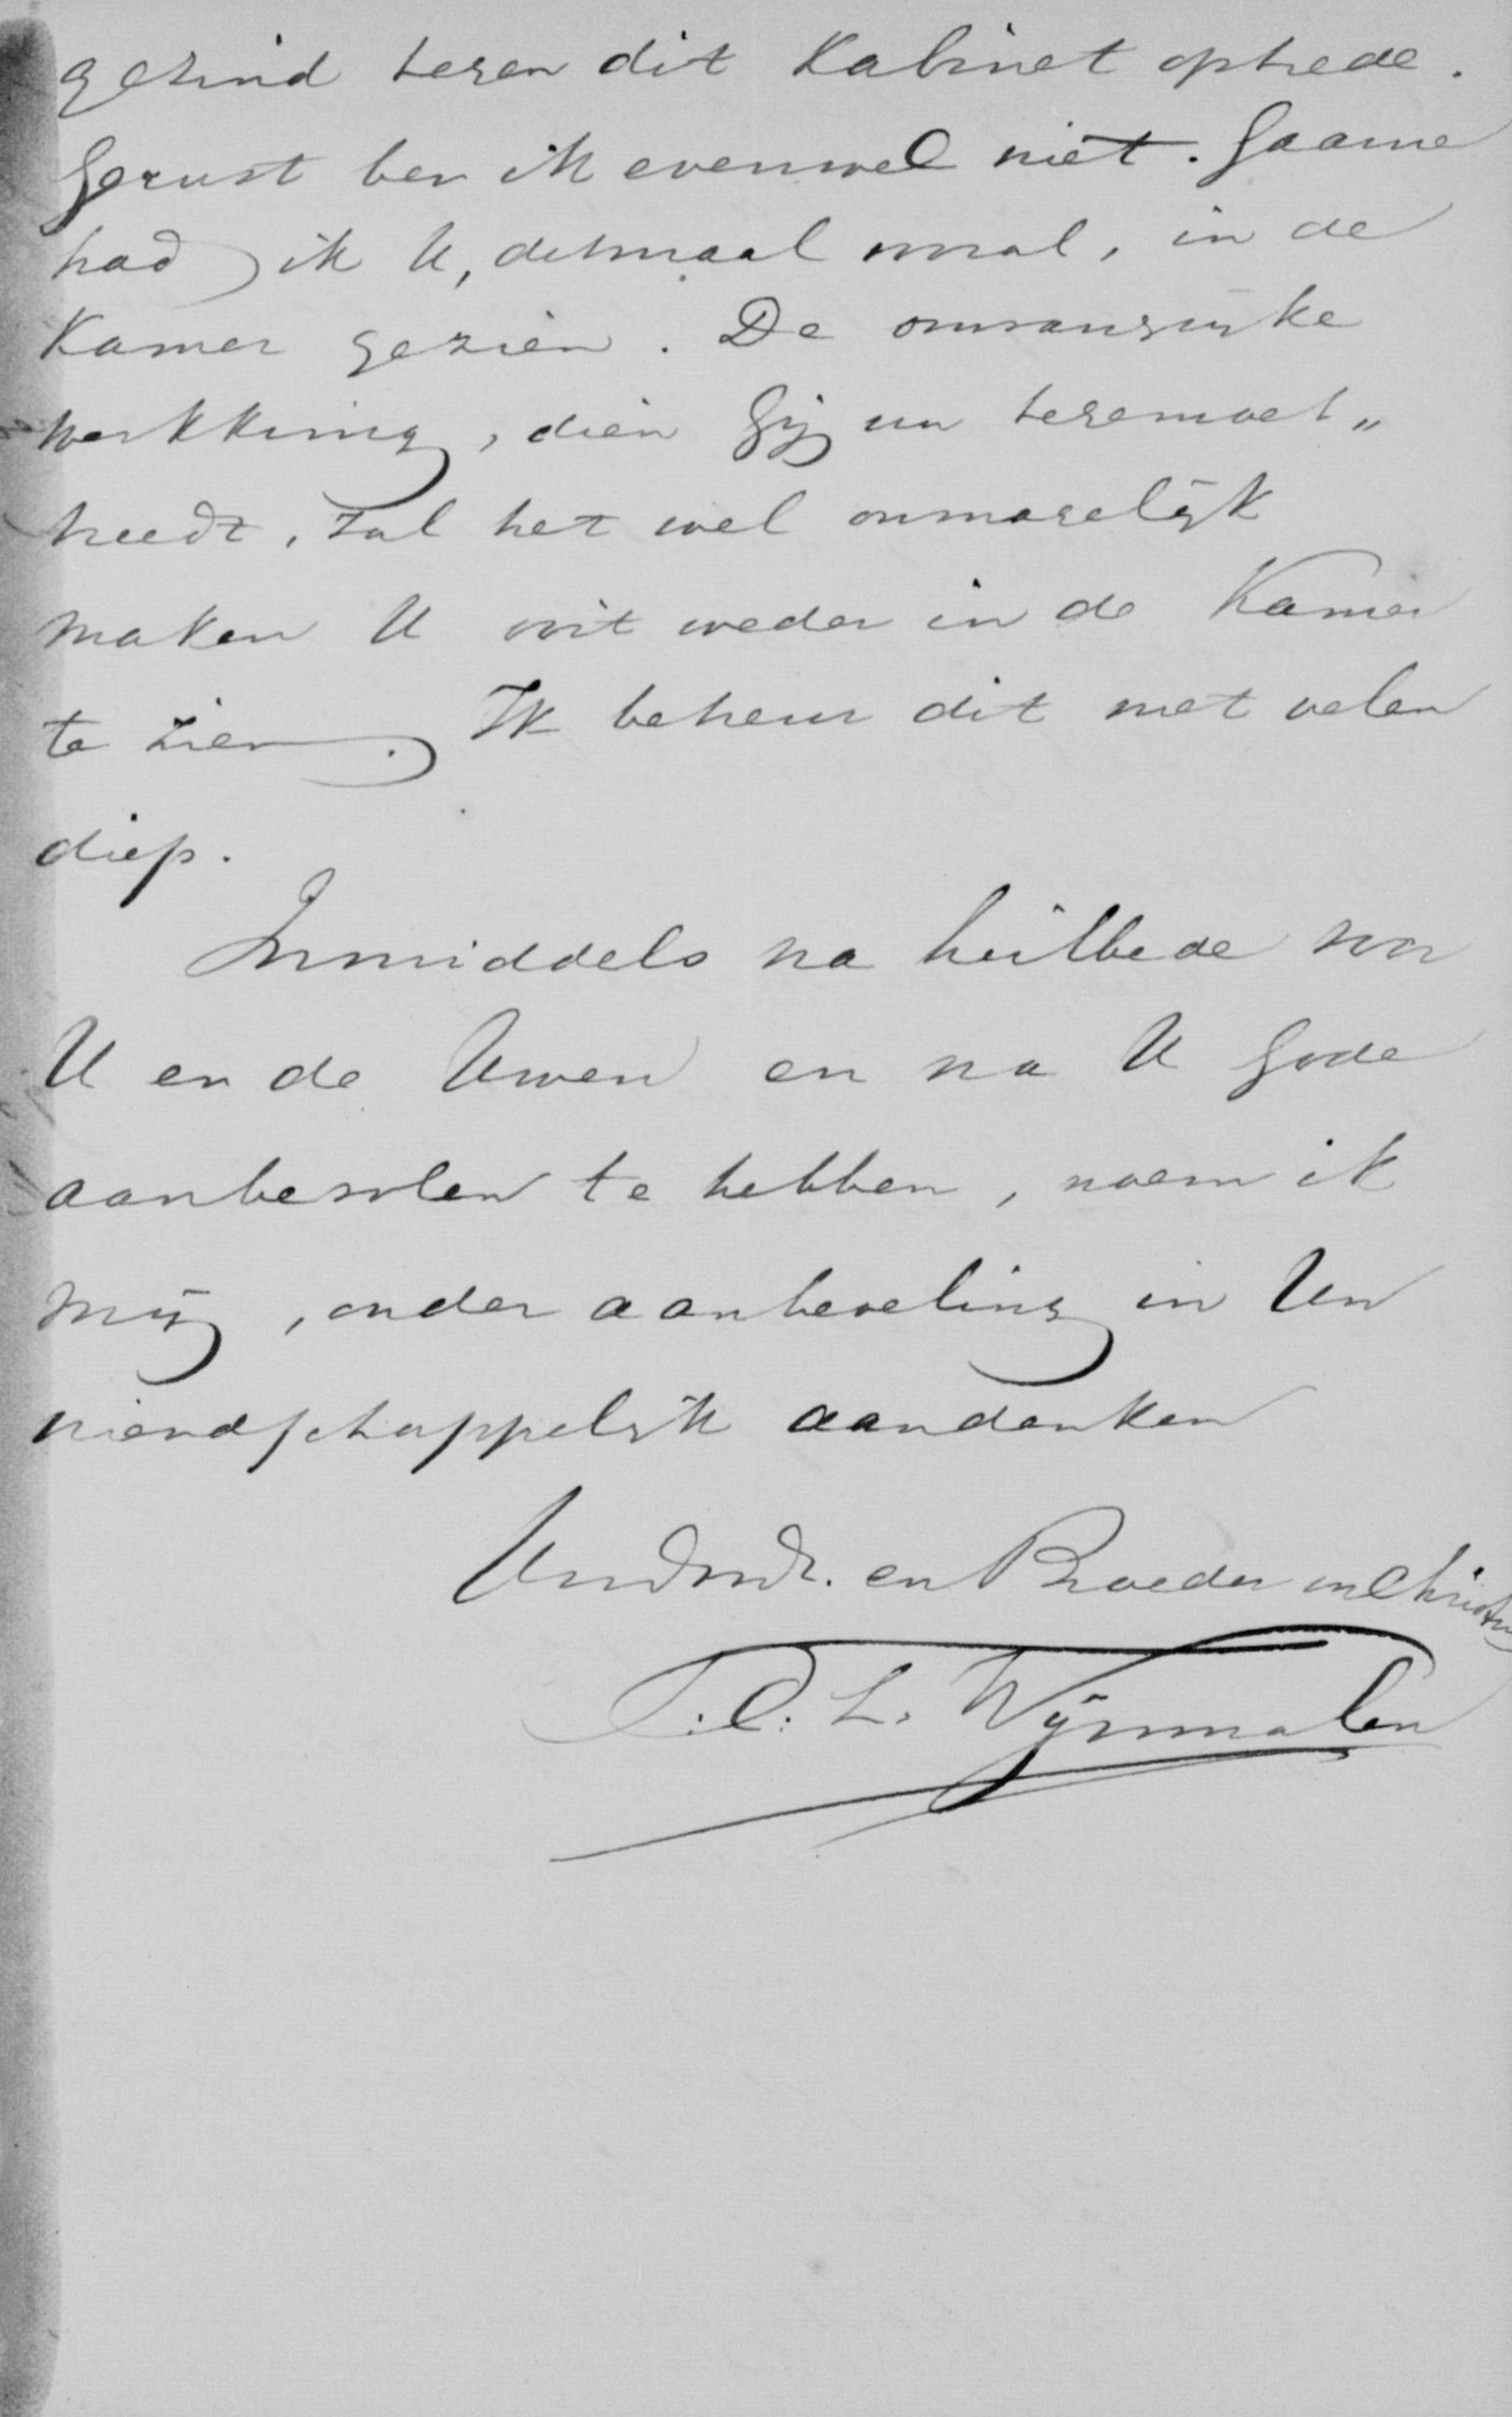 gezind tegen dit Kabinet optrede.
Gerust ben ik evenwel niet. Gaarne
had ik U, ditmaal vooral, in de
Kamer gezien. De omvangrijke
werkkring, dien Gij nu tegemoet„
treedt, zal het wel onmogelijk
maken U ooit weder in de Kamer
te zien. Ik betreur dit met velen
diep.
Inmiddels na heilbede voor
U en de Uwen en na U Gode
aanbevolen te hebben, noem ik
mij, onder aanbeveling in Uw
vriendschappelijk aandenken
en Broeder in Christus
T.C.L. Wijnmalen